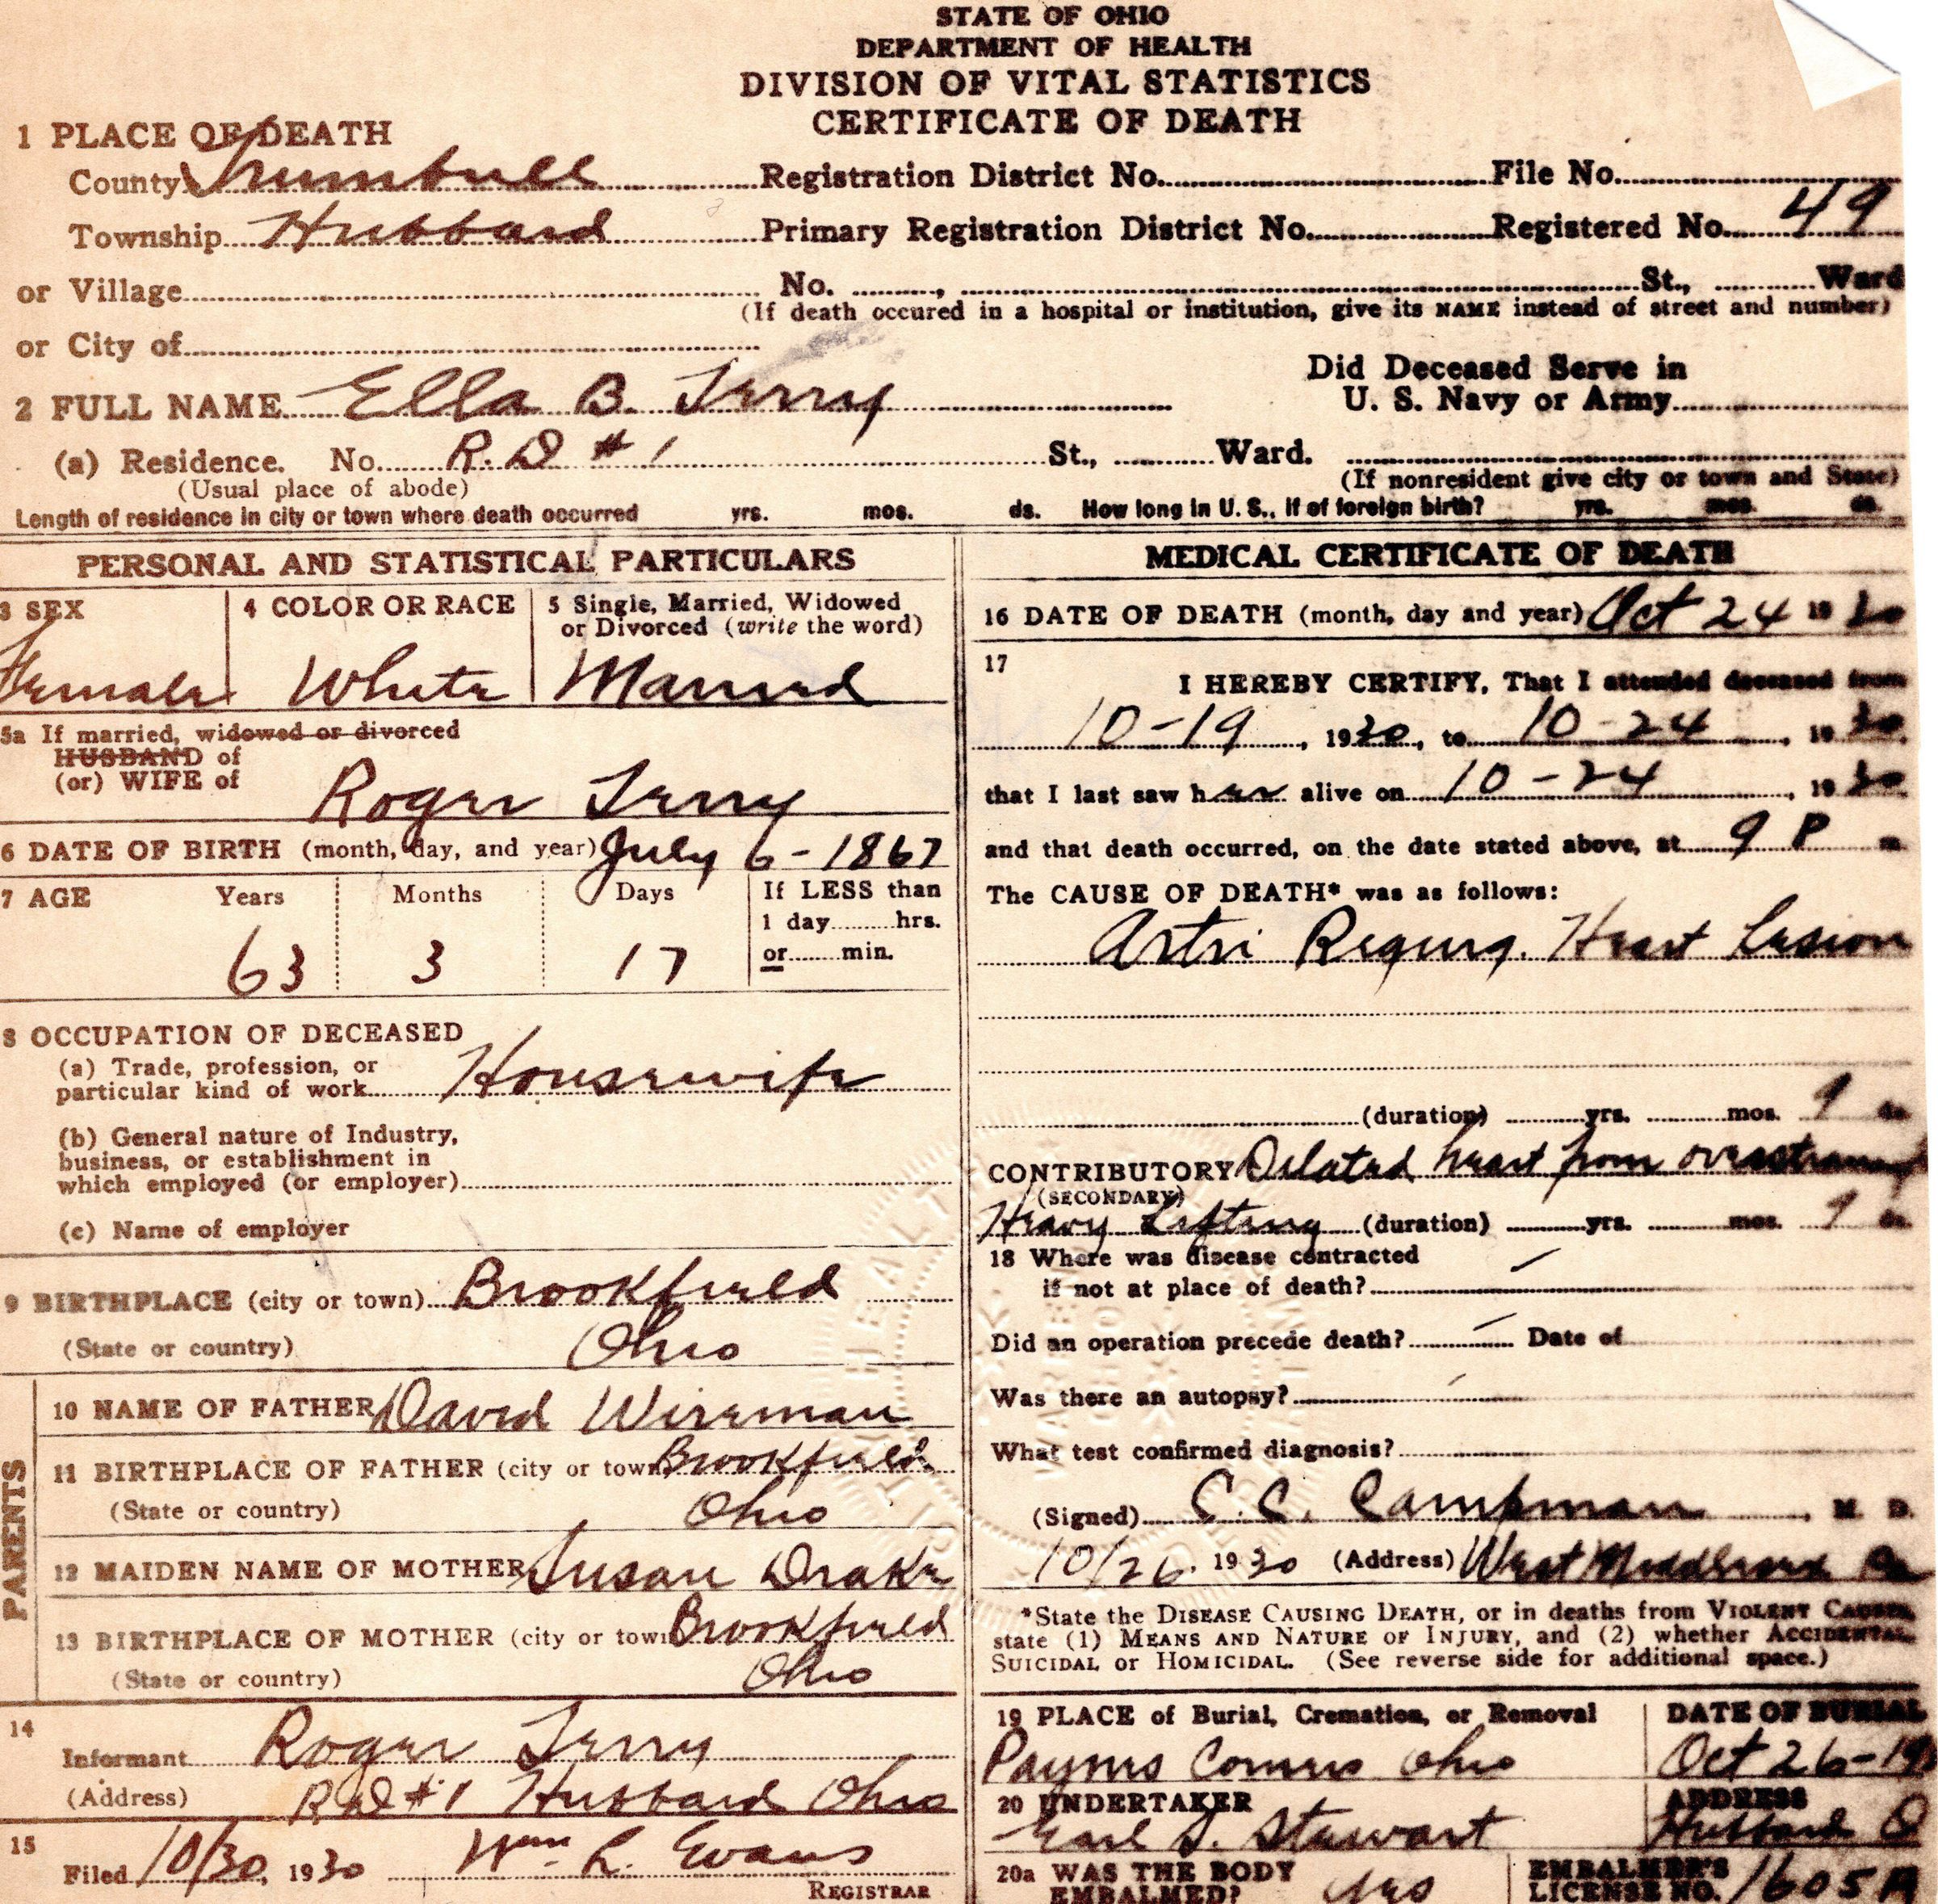 STATE OF OHIO
DEPARTMENT OF HEALTH
DIVISION OF VITAL STATISTICS
CERTIFICATE OF DEATH
1 PLACE OF DEATH
County Trumbull Registration District No. File No.
Township Hubbard Primary Registration District No. Registered No. 49
or Village No. , St., Ward
(If death occured in a hospital or institution, give its NAME instead of street and number)
or City of
Did Deceased Serve in
U. S. Navy or Army
2 FULL NAME Ella B. Terry
(a) Residence. No. R.D #1 St., Ward.
(Usual place of abode) (If nonresident give city or town and State)
Length of residence in city or town where death occurred yrs. mos. ds. How long in U. S., if of foreign birth? yrs. mos. ds.
PERSONAL AND STATISTICAL PARTICULARS
3 SEX
Female
4 COLOR OR RACE
White
5 Single, Married, Widowed
or Divorced (write the word)
Married
5a If married, widowed or divorced
HUSBAND of
(or) WIFE of
Roger Terry
6 DATE OF BIRTH (month, day, and year) July 6-1867
7 AGE Years Months Days If LESS than
1 day hrs.
or min.
63 3 17
8 OCCUPATION OF DECEASED
(a) Trade, profession, or
particular kind of work Housewife
(b) General nature of Industry,
business, or establishment in
which employed (or employer)
(c) Name of employer
9 BIRTHPLACE (city or town) Brookfield
(State or country) Ohio
PARENTS
10 NAME OF FATHER David Wireman
11 BIRTHPLACE OF FATHER (city or town) Brookfield
(State or country) Ohio
12 MAIDEN NAME OF MOTHER Susan Drake
13 BIRTHPLACE OF MOTHER (city or town Brookfield
(State or country) Ohio
14
Informant Roger Terry
(Address) R.D #1 Hubbard Ohio
15
Filed 10/30, 1930 Wm. R. Evans
REGISTRAR
MEDICAL CERTIFICATE OF DEATH
16 DATE OF DEATH (month, day and year) Oct 24 1930
17
I HEREBY CERTIFY, That I attended deceased from
10-19, 1930, to 10-24, 1930,
that I last saw her alive on 10-24, 1930
and that death occurred, on the date stated above, at 9 P m.
The CAUSE OF DEATH* was as follows:
Regurg. Heart Lesion
(duration) yrs. mos. 9 ds.
CONTRIBUTORY Dilated heart from
(SECONDARY)
Heavy Lifting (duration) yrs. mos. 9 ds.
18 Where was disease contracted
if not at place of death?
Did an operation precede death? Date of
Was there an autopsy?
What test confirmed diagnosis?
(Signed) C. C. Campman, M. D.
10/26, 1930 (Address) West Middlesex Pa
*State the DISEASE CAUSING DEATH, or in deaths from VIOLENT CAUSES,
state (1) MEANS AND NATURE OF INJURY, and (2) whether ACCIDENTAL,
SUICIDAL or HOMICIDAL. (See reverse side for additional space.)
19 PLACE of Burial, Cremation, or Removal
Paynes Corners Ohio
DATE OF BURIAL
Oct 26-19
20 UNDERTAKER
Earl Stewart
ADDRESS
Hubbard O
20a WAS THE BODY
EMBALMED? yes
EMBALMER'S
LICENSE NO. 1605A